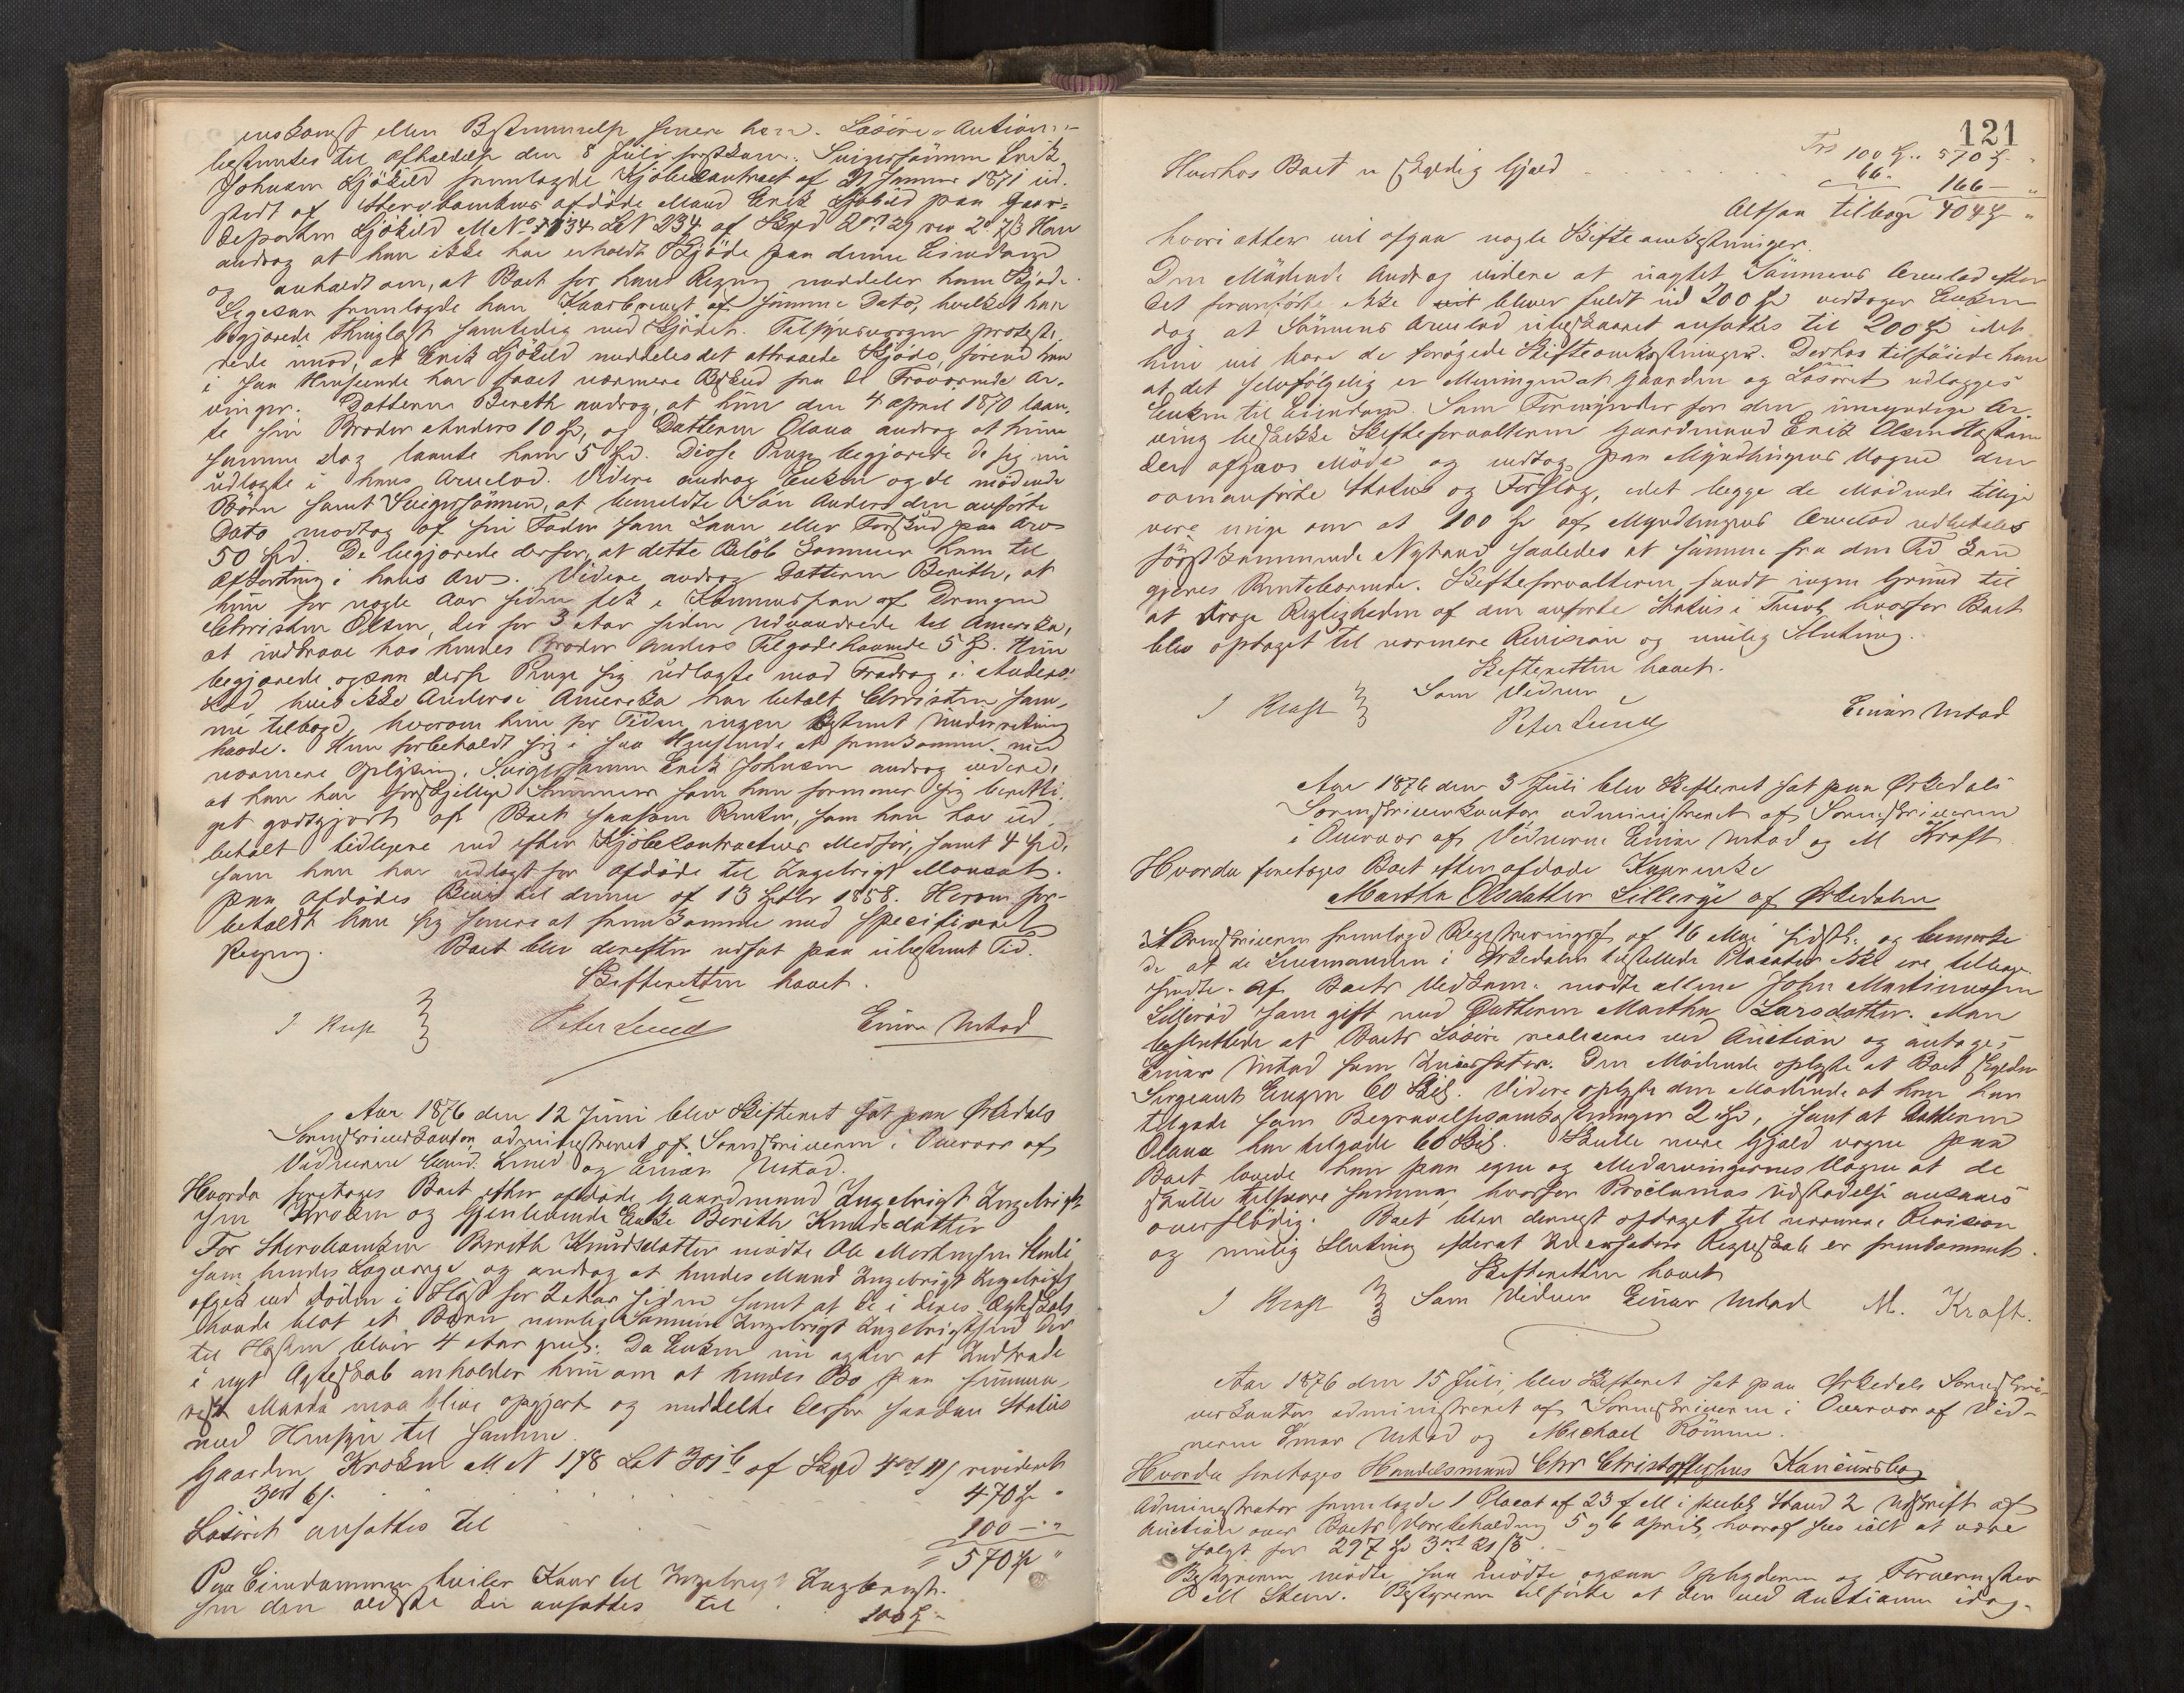 enskomst eller Bestemmelse senere hen. Løsøre-Auction
bestemtes til Afholdelse den 8 Juli førstkom. Svigersønnen Erik
Johnsen Gjøkild fremlagde Kjøbekontract af 21 Januar 1871 ud-
stedt af Stervboenkens afdøde Mand Erik Gjøkild paa Gaar-
departen Gjøkild M No 134 LN 234 af Skyld 2 ort 29 rev 2 d 7 ß Han
androg at han ikke har erholdt Skjøde paa denne Eiendom
og anholdt om, at Boet for hans Regning meddeler ham Skjøde
Ligesaa fremlagde han Kaarbrevet af samme Dato, hvilket han
begjærede thinglæst samtidig med Skjødet. Tilsynsværgen proteste-
rede imod, at Erik Gjøkild meddeles det attraaede Skjøde, førend han
i saa Henseende har faaet nærmere Besked fra de Fraværende Ar-
vinger. Datteren Bereth androg, at hun den 4 April 1870 laan-
te sin Broder Anders 10 Spd, og Datteren Olava androg at hun
samme Dag laante ham 5 Spd. Disse Penge begjærede de sig nu
udlagte i hans Arvelod. Videre androg Enken og de mødende
Børn samt Svigersønnen, at bemeldte Søn Anders den anførte
Dato modtog af sin Fader som Laan eller Forskud paa Arv
50 Spd. De begjærede derfor, at dette Beløb kommer ham til
Afkortning i hans Arv. Videre androg Datteren Berith, at
hun for nogle Aar siden fik i Kommission af Drengen
Christen Olsen, der for 3 Aar siden udvandrede til Amerika,
at indkræve hos hendes Broder Anders Tilgodehavende 5 Spd. Hun
begjærede ogsaa disse Penge sig udlagte mod Fradrag i Anders's
Lod hvis ikke Anders i Amerika har betalt Christen sam-
me tilbage, hvorom hun for Tiden ingen bestemt Underretning
havde. Hun forbeholdt sig i saa Henseende at fremkomme med
nærmere Oplysning. Svigersønnen Erik Johnsen androg videre,
at han har forskjellige Summer som han formener sig beretti-
get godtgjort af Boet saasom Renter, som han har ud-
betalt tidligere end efter Kjøbekontractens Medfør, samt 4 Spd,
som han har udlagt for afdøde til Ingebrigt Monsæt
paa afdødes Bevis til denne af 13 Septbr 1858. Herom for-
beholdt han sig senere at fremkomme med specificeret
Regning. Boet blev derefter udsat paa ubestemt Tid.
Skifteretten hævet.
J Krag Peter Lund Einar Mstad
Aar 1876 den 12 Juni blev Skifteret sat paa Ørkedals
Sorenskriverkontor administreret af Sorenskriveren i Overvær af
Vidnerne Cand. Lund og Einar Mstad.
Hvorda foretoges Boet efter afdøde Gaardmand Ingebrigt Ingebrigt-
sen Kroken og Gjenlevende Enke Berith Knudsdatter
For Stervboenken Bereth Knudsdatter mødte Ole Mortensen Hmli
som hendes Lagværge og androg at hendes Mand Ingebrigt Ingebrigts
afgik ved Døden i Høst for 2 Aar siden samt at de i deres Ægteskab
havde blot et Barn nemlig Sønnen Ingebrigt Ingebrigtsen der
til Høsten bliver 4 Aar gml. Da Enken nu agter at Indtræde
i nyt Ægteskab anholder hun om at hendes Bo paa summa-
risk Maade maa blive opgjort og meddelte derfor saadan Status
med Hensyn til samme.
Gaarden Kroken M N 178 L N 301 b af Skyld 4 ort 11 ß revideret
3 ort 6 ß . . . 470 Spd "
Løsøret ansattes til . . . 100 — "
" 570 Sp "
Paa Eiendommen hviler Kaar til Ingebrigt Ingebrigt-
sen den ældste der ansattes til . 100 Sp —
121
Trs 100 Sp " 570 Sp "
Hvorhos Boet er skyldig Gjæld . . . . . 66 " 166 — "
Altsaa tilbage 404 Sp "
hvori atter vil afgaa nogle Skifteomkostninger.
Den Mødende Androg videre at uagtet Sønnens Arvelod efter
det foranførte ikke vil bliver fuldt ud 200 Spd vedtager Enken
dog at Sønnens Arvelod ubeskaaret ansættes til 200 Spd idet
hun vil bære de forøgede Skifteomkostninger. Derhos tilføiede han
at det selvfølgelig er Meningen at Gaarden og Løsøret udlægges
Enken til Eiendom. Som Formynder for den umyndige Ar-
ving beskikke Skifteforvalteren Gaardmand Erik Olsen Hostøn
der afgav Møde og vedtog paa Myndlingens Vegne den
ovenanførte Status og Forslag, idet begge de Mødende tillige
vare enige om at 100 Sp af Myndlingens Arvelod udbetales
først kommende Nytaar saaledes at samme fra den Tid kan
gjøres Rentebærende. Skifteforvalteren fandt ingen Grund til
at drage Rigtigheden af den anførte Status i Tvivl, hvorfor Boet
blev optaget til nærmere Revision og mulig Slutning.
Skifteretten hævet.
J Krag Som Vidner
Peter Lund Einar Mstad
Aar 1876 den 3 Juli blev Skifteret sat paa Ørkedals
Sorenskriverkontor administreret af Sorenskriveren
i Overvær af Vidnerne Einar Mstad og M Kraft
Hvorda foretoges Boet efter afdøde Kaarenke
Martha Olsdatter Lillerye af Ørkedalen
Sorenskriveren fremlagd Registreringsfr af 16 Mai sidstl. og bemærke-
de at de Lensmanden i Ørkedalen tilstillede Placater ikke ere tilbage-
sendte. Af Boets Vedkom. mødte allene John Martinussen
Lillerød som gift med Datteren Martha Larsdatter. Man
besluttede at Boets Løsøre realiseres ved Auction og antages
Einar Mstad som Incassator. Den Mødende oplyste at Boet skylder
Sergeant Eugen 60 Skil. Videre oplyste den Mødende at han har
tilgode som Begravelsesomkostninger 2 Spd, samt at Datteren
Olava har tilgode 60 Skil. Skulle mere Gjæld vogne paa
Boet lovede han paa egne og Medarvingernes Vegne at de
skulle tilsvare samme, hvorfor Proclamas Udstædelse ansaaes
overflødig. Boet blev dernæst optaget til nærmere Revision
og mulig Slutning efterat Incassators Regnskab er fremkommet.
Skifteretten hævet
J Krag Som Vidner Einar Mstad M. Kraft.
Aar 1876 den 15 Juli, blev Skifteret sat paa Ørkedals Sorenskri-
verkontor administreret af Sorenskriveren i Overvær af Vid-
nerne Einar Mstad og Michael Rømme.
Hvorda foretoges Handelsmand Chr Christoffersens Konkursbo
Administrator fremlagde 1 Placat af 23 f M i publ Stand 2 Udskrift af
Auction over Boets Varebeholdning 5 og 6 April, hvoraf sees ialt at være
solgt for 297 Spd 3 ort 21 ß.
Bestyreren mødte, saa mødte ogsaa Opbyderen og
M Steen. Bestyreren tilførte at den ved Auctionen idag